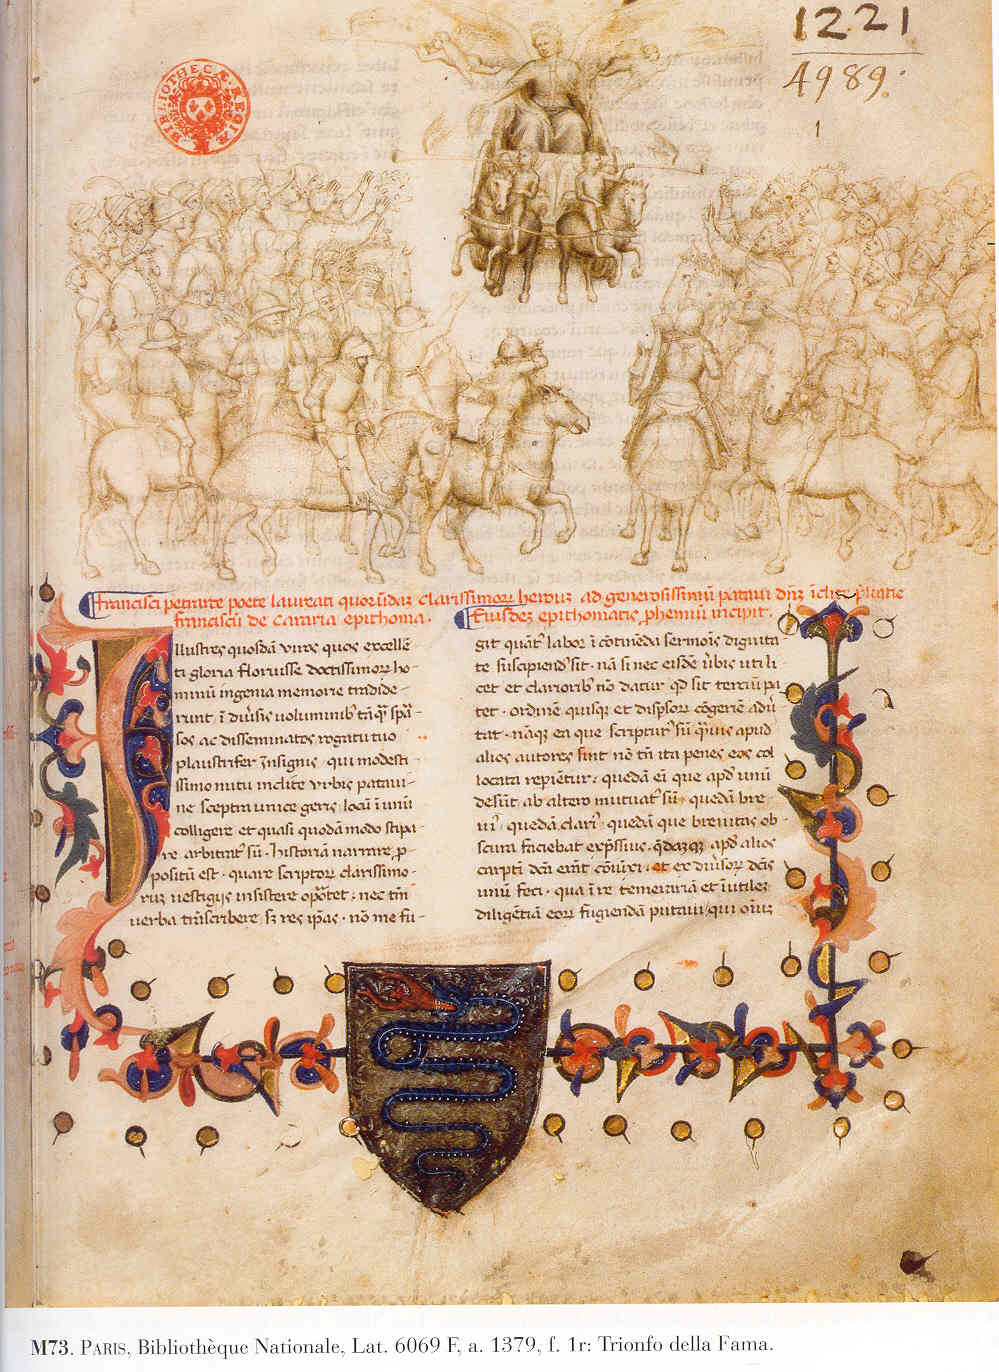 1221
4989.
1
BIBLIOTHECÆ REGIÆ
Francisci petrarce poete laureati quorūdaz clarissimorꝝ heroum ad generosissimū patavi dn̄z
franciscū de Cararia epithoma.
Eiusdez epithomatis phemiū incipit.
Illustres quosdā viros quos excellē
ti gloria floruisse doctissimorꝝ ho-
minū ingenia memorie tradide-
runt. ī diu'sis uoluminib' tāq̄ spā-
sos ac disseminatos rogatu tuo
plaustrifer insignis. qui modesti
ssimo nutu inclite vrbis patavi-
ne sceptra unice geris. locū ī unū
colligere et quasi quodā modo stipa-
re arbitrat' sū. historiā narrare p-
positū est. quare scriptorꝝ clarissimo-
rum uestigijs insistere oportet. nec tm̄
uerba trāscribere. sꝫ res ip̄as. no me fu-
git quāt' labor ī cōtinēda sermoīs dignita
te suscipiend' sit. nā si nec eisdē ubis uti li
cet et clariorib' nō datur qd sit tercium pa
tet. ordinē quisq̄ et dispsorꝝ cōgeriē adiu
tat. nāq̄ ea que scriptur' sū qmis apud
alios autores sint nō tn̄ ita penes eos col
locata repiētur. quedā ei que apd unū
desūt ab altero mutuat' sū. quedā bre
ui' quedā clari' quedā que brevitas ob-
scura faciebat expssius. qdazq̄ apd alios
carpti dcā erāt cōiuxi. et ex diuisorꝝ dcīs
unū feci. qua ī re temerariā et īutilez
diligētiā eorꝝ fugiendā putaui qui oīuz
M73. PARIS, Bibliothèque Nationale, Lat. 6069 F, a. 1379, f. 1r: Trionfo della Fama.